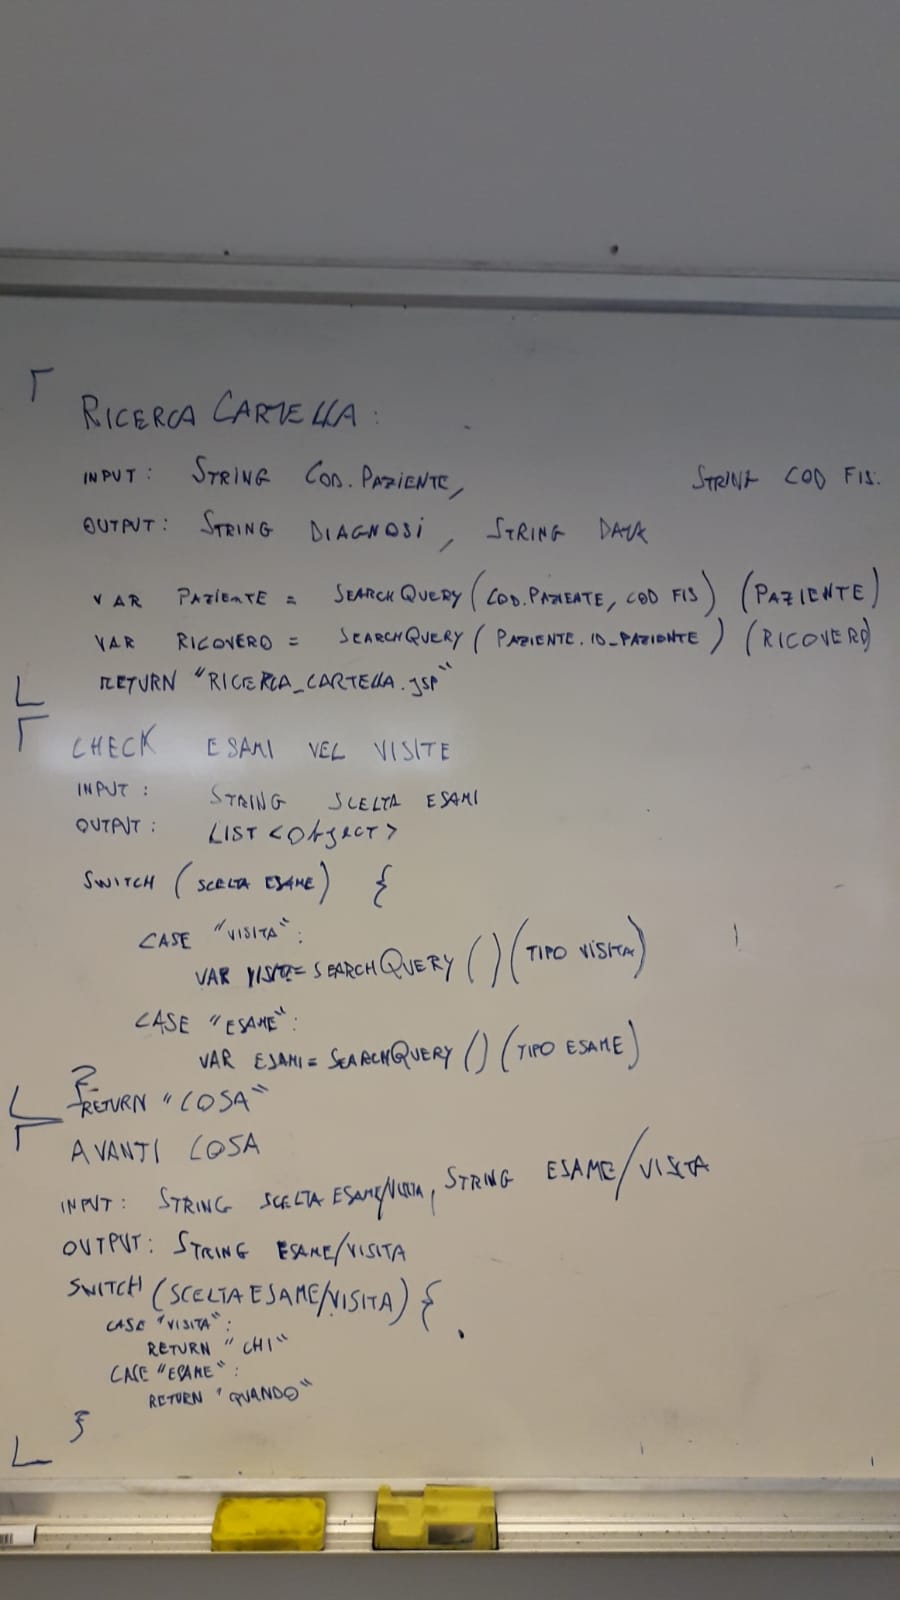 RICERCA CARTELLA:
INPUT: STRING COD. PAZIENTE, STRING COD FIS.
OUTPUT: STRING DIAGNOSI, STRING DATA
VAR PAZIENTE = SEARCHQUERY(COD.PAZIENTE, COD FIS) (PAZIENTE)
VAR RICOVERO = SEARCHQUERY(PAZIENTE.ID_PAZIENTE) (RICOVERO)
RETURN "RICERCA_CARTELLA.JSP"
CHECK ESAMI VEL VISITE
INPUT: STRING SCELTA ESAMI
OUTPUT: LIST<ObJECT>
SWITCH (SCELTA ESAME) {
CASE "VISITA":
VAR VISITE= SEARCHQUERY () (TIPO VISITA)
CASE "ESAME":
VAR ESAMI= SEARCHQUERY () (TIPO ESAME)
}
RETURN "COSA"
AVANTI COSA
INPUT: STRING SCELTA ESAME/VISITA, STRING ESAME/VISITA
OUTPUT: STRING ESAME/VISITA
SWITCH (SCELTA ESAME/VISITA) {
CASE "VISITA":
RETURN "CHI"
CASE "ESAME":
RETURN "QUANDO"
}